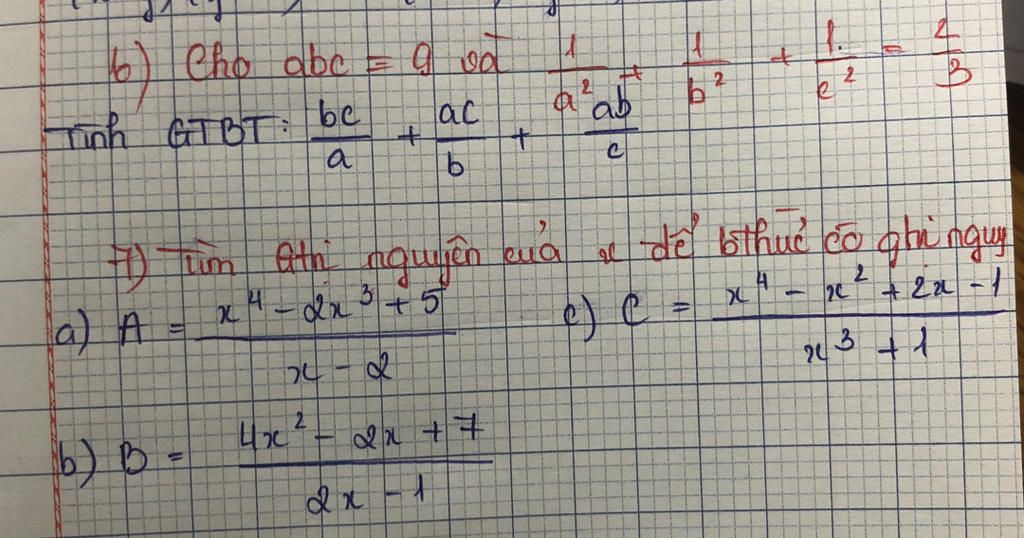 6) Cho abc = 9 và 1/a² + 1/b² + 1/c² = 2/3
Tính GTBT: bc/a + ac/b + ab/c
7) Tìm Gtri nguyên của x để bthức có gtri nguy
a) A = (x⁴ - 2x³ + 5)/(x - 2) c) C = (x⁴ - x² + 2x - 1)/(x³ + 1)
b) B = (4x² - 2x + 7)/(2x - 1)